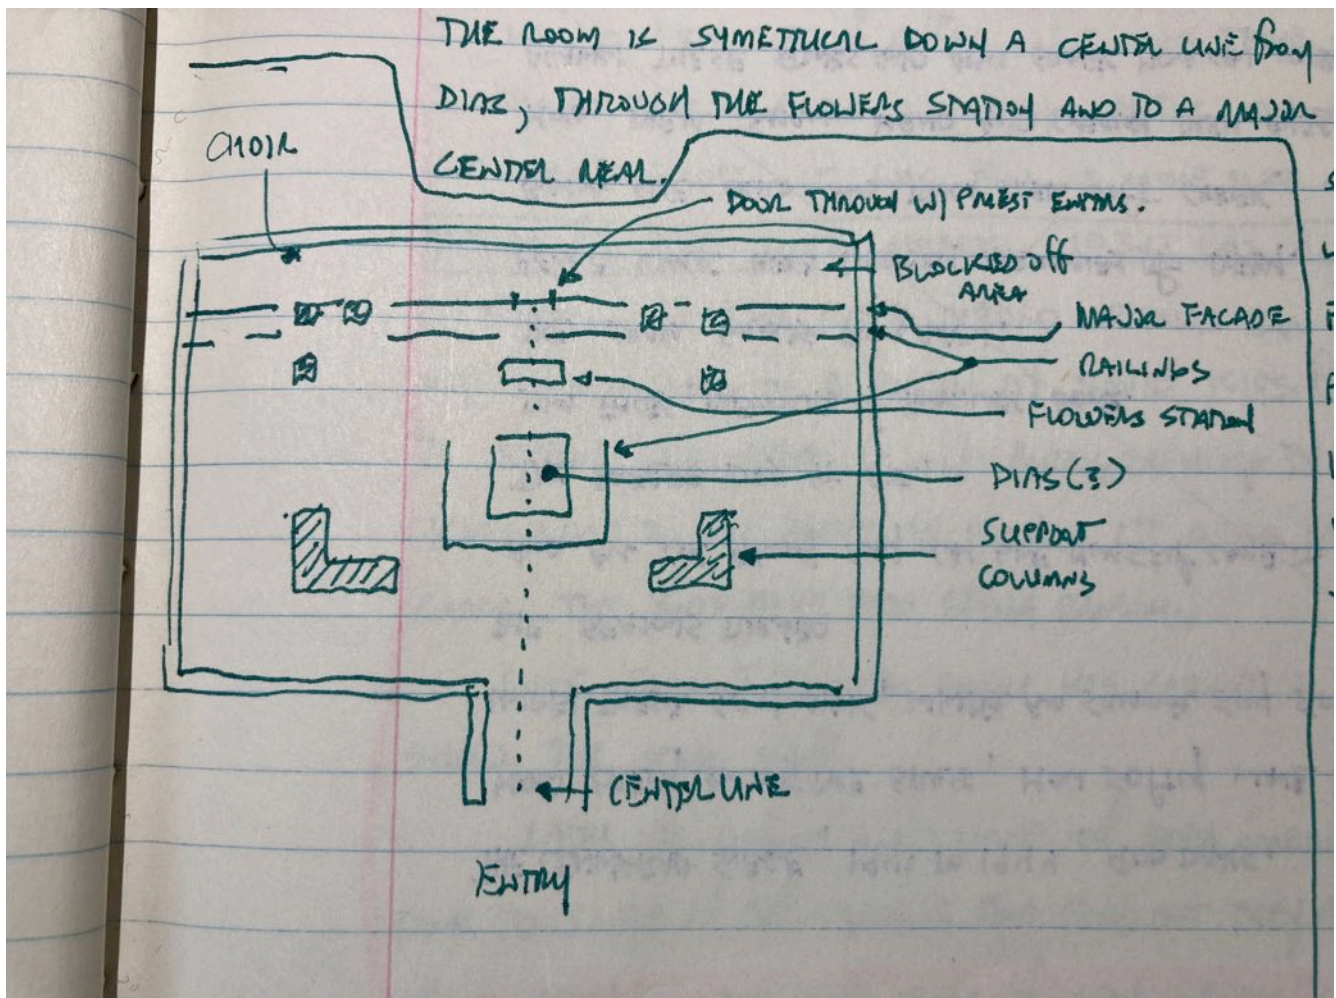 THE ROOM IS SYMETTRICAL DOWN A CENTER LINE from
DIAS, THROUGH THE FLOWERS STATION AND TO A MAJOR
CENTER REAR.
CHOIR
DOOR THROUGH W/ PRIEST ENTERS.
BLOCKED off
AREA
MAJOR FACADE
RAILINGS
FLOWERS STATION
DIAS (?)
SUPPORT
COLUMNS
CENTER LINE
ENTRY